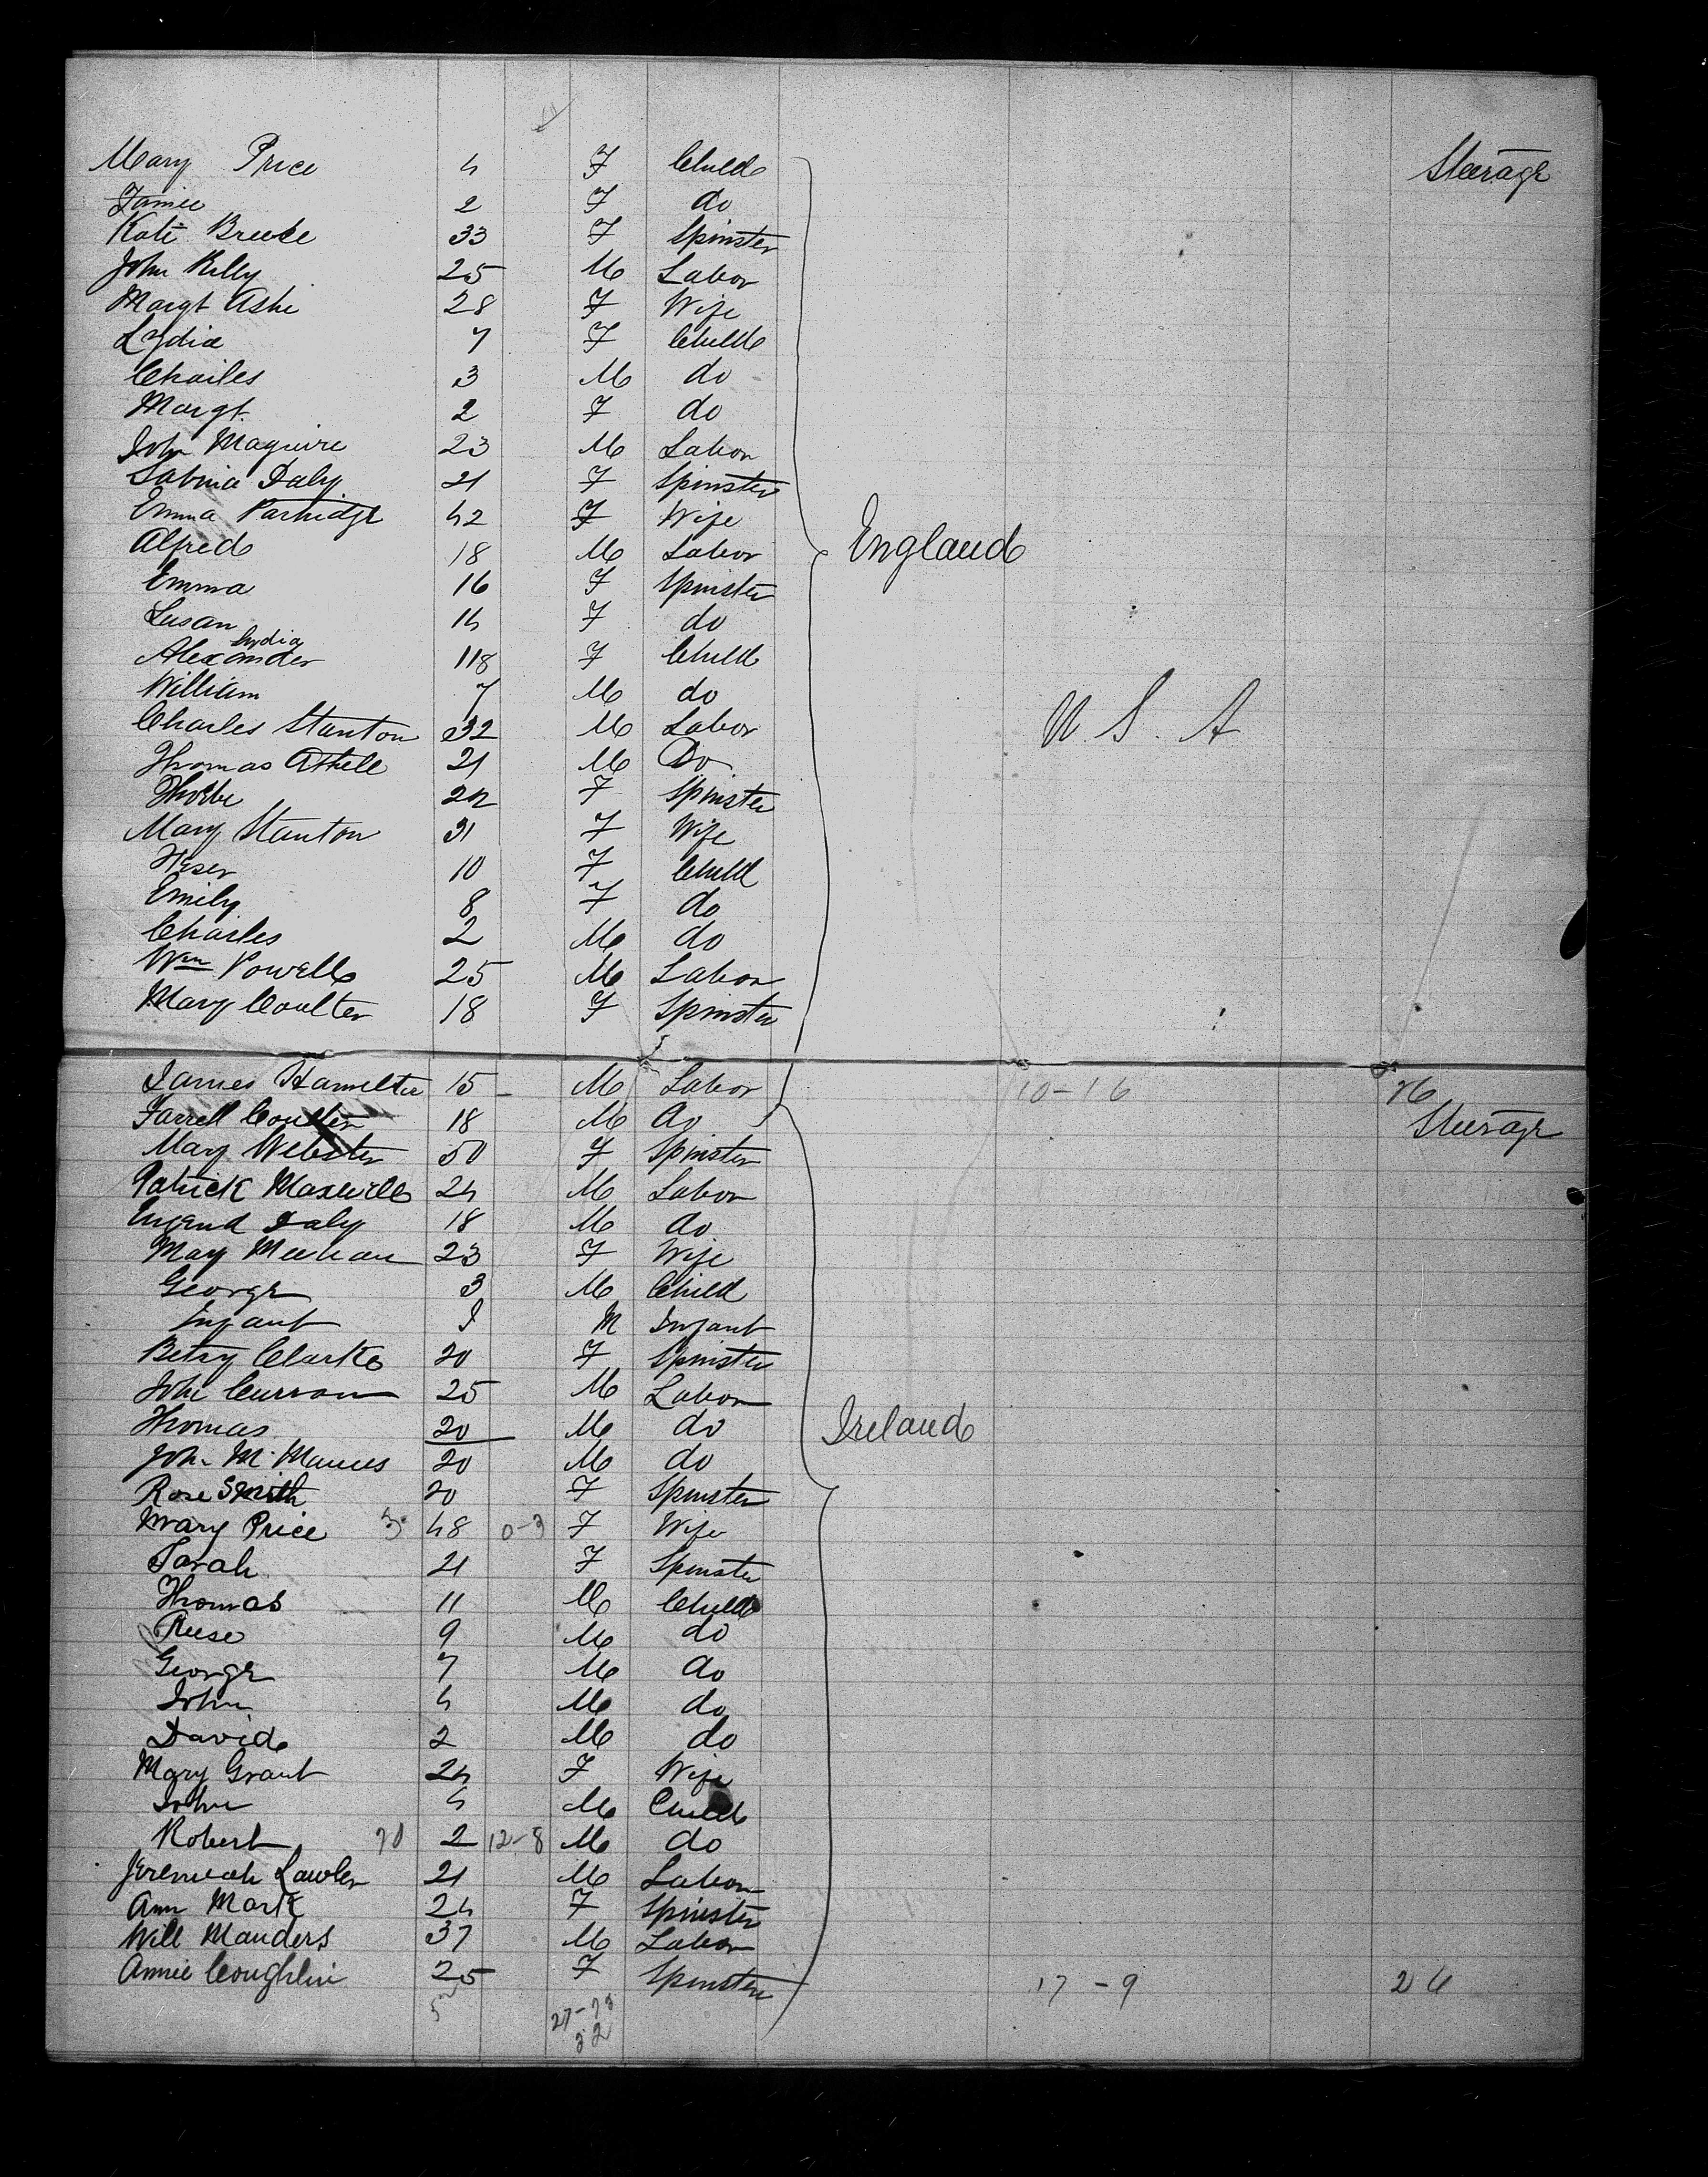 Mary Price 4 F Child Steerage
Fannie 2 F do
Kate Breeke 33 F Spinster
John Killy 25 M Labor
Margt Ashe 28 F Wife
Lydia 7 F Child
Charles 3 M do
Margt. 2 F do
John Maguire 23 M Labor
Sabina Daly 21 F Spinster
Emma Partridge 42 F Wife
England
Alfred 18 M Labor
Emma 16 F Spinster
Susan 14 F do
Lydia
Alexander 118 F Child
William 7 M do
U. S. A
Charles Stanton 32 M Labor
Thomas Athell 21 M Do
Phoebe F Spinster
Mary Stanton 31 F Wife
Heser 10 F Child
Emily 8 F do
Charles 2 M do
Wm Powell 25 M Labor
Mary Coulter 18 F Spinster
James Hamilton 15 M Labor 10-16 26
Farrell Coulter 18 M do Steerage
Mary Webster 50 F Spinster
Patrick Maxwell 24 M Labor
Eugend Daly 18 M do
May Meehan 23 F Wife
George 3 M Child
Infant I M Infant
Betsy Clarke 20 F Spinster
John Curran 25 M Labor
Thomas 20 M do
Ireland
John McManus 20 M do
Rose Smith 20 F Spinster
Mary Price 48 0-3 F Wife
Sarah 21 F Spinster
Thomas 11 M Child
Reese 9 M do
George 7 M do
John 4 M do
David 2 M do
Mary Grant 24 F Wife
John 4 M Child
Robert 2 12-8 M do
Jeremiah Lawler 21 M Labor
Ann Mark 24 F Spinster
Will Manders 37 M Labor
Annie Coughlin 25 F Spinster 17-9 26